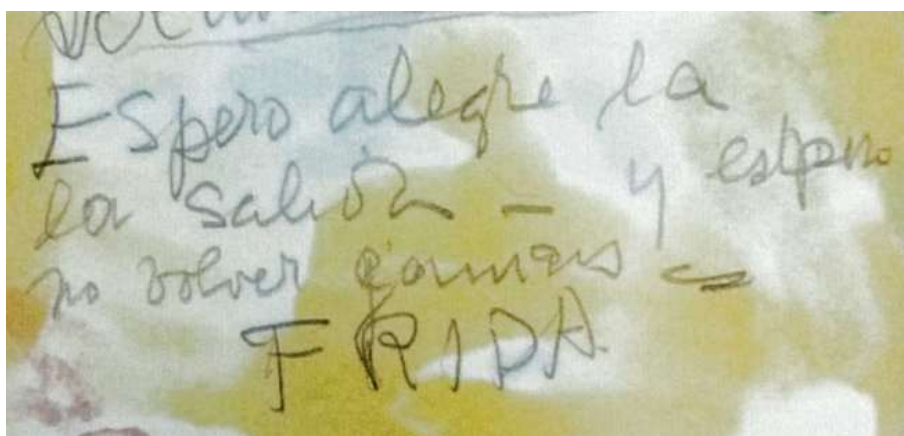 Espero alegre la
la salida – y espero
no volver jamás –
FRIDA